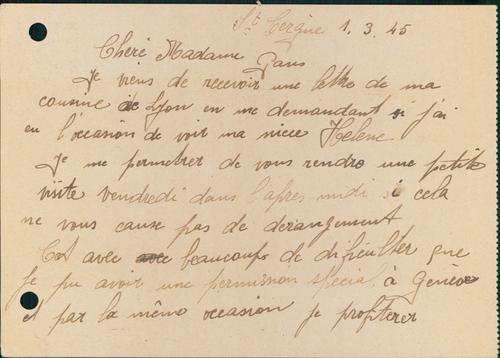 St Cergue 1.3.45
Cheré Madame Gans
Je viens de recevoir une lettre de ma
cousine de Lyon en me demandant si j'ai
eu l'occasion de voir ma niece Helene
Je me permetrer de vous rendre une petite
visite vendredi dans l'apres midi si cela
ne vous cause pas de derangement
Cet avec beaucoup de dificulter que
je pu avoir une permission special à Geneve
et par la même occasion je profiterer